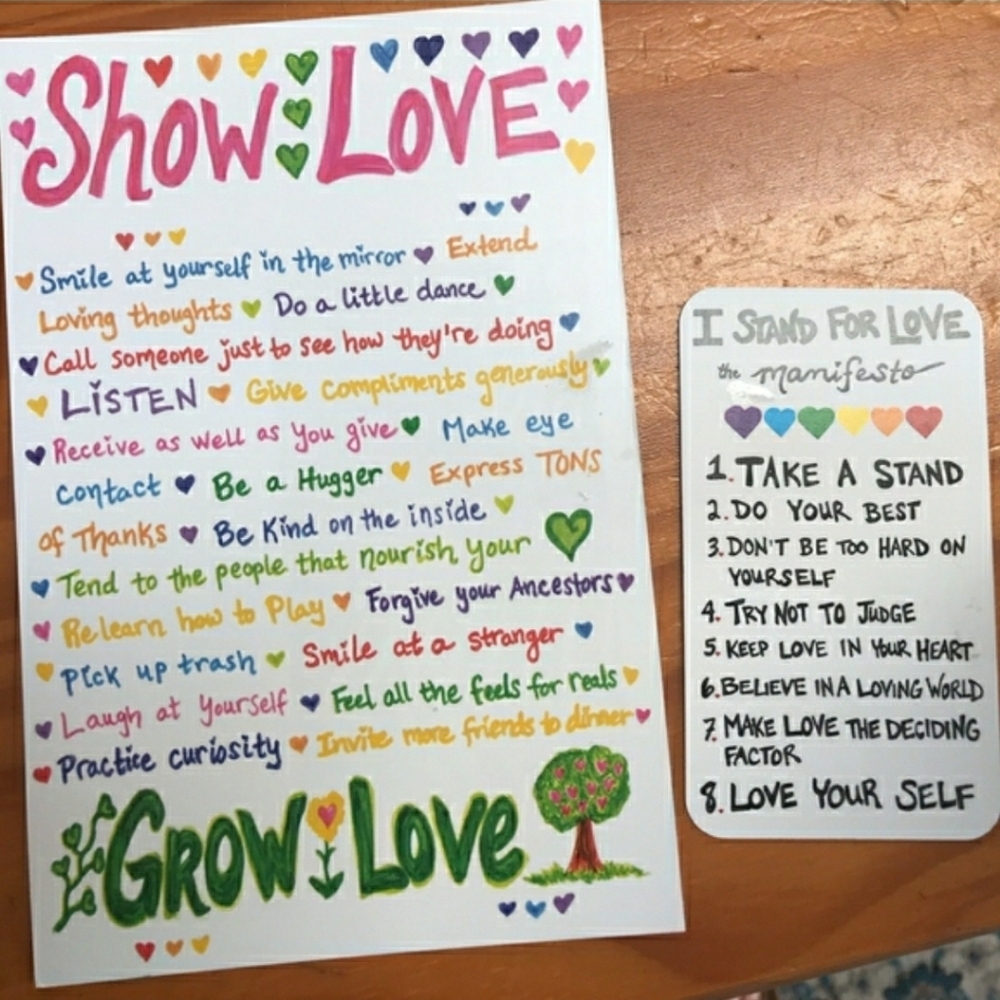 Show LOVE
Smile at yourself in the mirror Extend
Loving thoughts Do a little dance
Call someone just to see how they're doing
LiSTEN Give compliments generously
Receive as well as you give Make eye
contact Be a Hugger Express TONS
of Thanks Be Kind on the inside
Tend to the people that nourish your
Relearn how to Play Forgive your Ancestors
Pick up trash Smile at a stranger
Laugh at yourself Feel all the feels for reals
Practice curiosity Invite more friends to dinner
GROW LOVE
I STAND FOR LOVE
the manifesto
1. TAKE A STAND
2. DO YOUR BEST
3. DON'T BE TOO HARD ON
YOURSELF
4. TRY NOT TO JUDGE
5. KEEP LOVE IN YOUR HEART
6. BELIEVE IN A LOVING WORLD
7. MAKE LOVE THE DECIDING
FACTOR
8. LOVE YOUR SELF